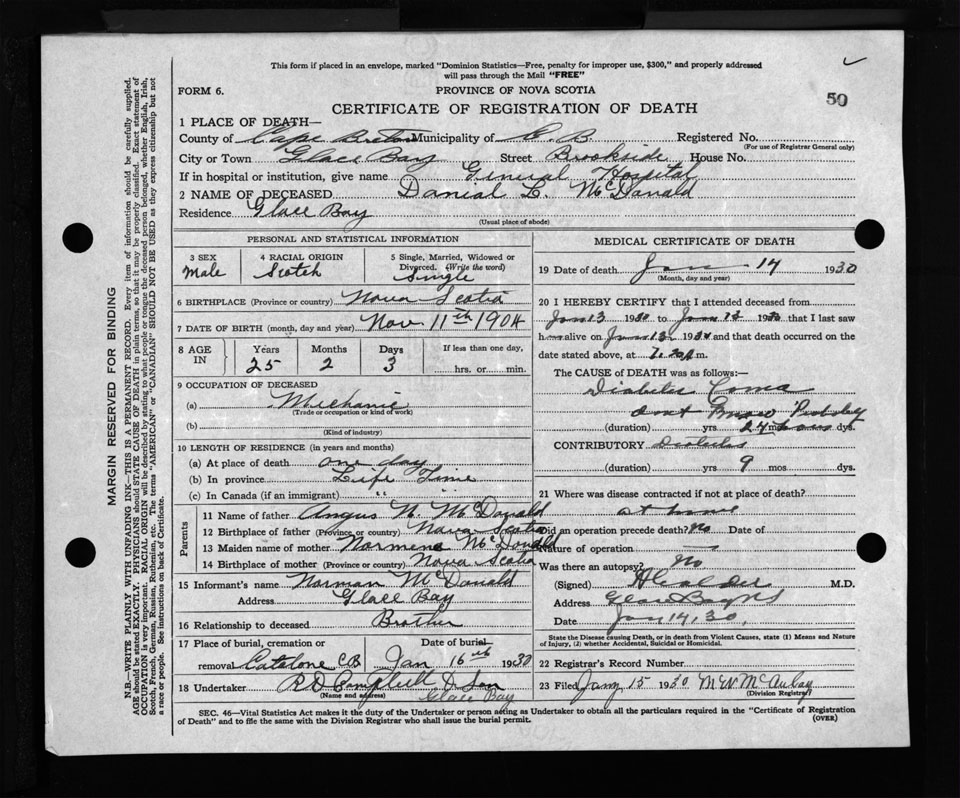 This form if placed in an envelope, marked "Dominion Statistics—Free, penalty for improper use, $300," and properly addressed
will pass through the Mail "FREE"
FORM 6.
PROVINCE OF NOVA SCOTIA
50
CERTIFICATE OF REGISTRATION OF DEATH
1 PLACE OF DEATH—
County of Cape Breton Municipality of C. B. Registered No.
(For use of Registrar General only)
City or Town Glace Bay Street Brookside House No.
If in hospital or institution, give name General Hospital
2 NAME OF DECEASED Danial L. McDanald
Residence Glace Bay
(Usual place of abode)
PERSONAL AND STATISTICAL INFORMATION
3 SEX 4 RACIAL ORIGIN 5 Single, Married, Widowed or
Divorced. (Write the word)
Male Scotch Single
6 BIRTHPLACE (Province or country) Nova Scotia
7 DATE OF BIRTH (month, day and year) Nov 11th 1904
8 AGE IN Years Months Days If less than one day,
25 2 3 hrs. or min.
9 OCCUPATION OF DECEASED
(a) Mechanic
(Trade or occupation or kind of work)
(b)
(Kind of industry)
10 LENGTH OF RESIDENCE (in years and months)
(a) At place of death one day
(b) In province Life Time
(c) In Canada (if an immigrant) " "
Parents
11 Name of father Angus N. McDanald
12 Birthplace of father (Province or country) Nova Scotia
13 Maiden name of mother McDonald
14 Birthplace of mother (Province or country) Nova Scotia
15 Informant's name Norman McDonald
Address Glace Bay
16 Relationship to deceased Brother
17 Place of burial, cremation or Date of burial
removal Catalone CB Jan 16th 1930
18 Undertaker R D Campbell & Son
(Name and address) Glace Bay
MEDICAL CERTIFICATE OF DEATH
19 Date of death Jan 14 1930
(Month, day and year)
20 I HEREBY CERTIFY that I attended deceased from
Jan 13 1930 to Jan 13 1930 that I last saw
h alive on Jan 13 1930 and that death occurred on the
date stated above, at m.
The CAUSE of DEATH was as follows:—
Diabetes Coma
dont know
(duration) yrs 24 mos dys.
CONTRIBUTORY Diabetes
(duration) yrs 9 mos dys.
21 Where was disease contracted if not at place of death?
at home
Did an operation precede death? No Date of
Nature of operation
Was there an autopsy? No
(Signed) M.D.
Address
Date Jan 14, 30,
State the Disease causing Death, or in death from Violent Causes, state (1) Means and Nature
of Injury, (2) whether Accidental, Suicidal or Homicidal.
22 Registrar's Record Number
23 Filed Jany 15 1930
(Division Registrar)
SEC. 46—Vital Statistics Act makes it the duty of the Undertaker or person acting as Undertaker to obtain all the particulars required in the "Certificate of Registration
of Death" and to file the same with the Division Registrar who shall issue the burial permit.
(OVER)
MARGIN RESERVED FOR BINDING
N.B.—WRITE PLAINLY WITH UNFADING INK—THIS IS A PERMANENT RECORD. Every item of information should be carefully supplied.
AGE should be stated EXACTLY. PHYSICIANS should STATE CAUSE OF DEATH in plain terms, so that it may be properly classified. Exact statement of
OCCUPATION is very important. RACIAL ORIGIN will be described by stating to what people or tongue the deceased person belonged, whether English, Irish,
Scotch, French, German, Russian, Ruthenian, etc. The terms "AMERICAN" or "CANADIAN" SHOULD NOT BE USED as they express citizenship but not
a race or people. See instructions on back of Certificate.